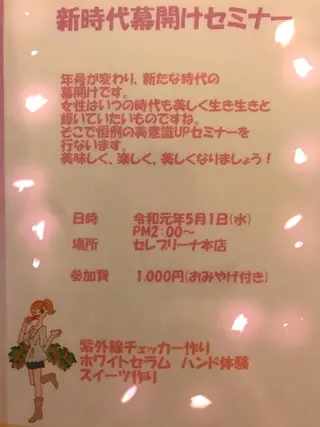 新時代幕開けセミナー
年号が変わり、新たな時代の
幕開けです。
女性はいつの時代も美しく生き生きと
輝いていたいものですね。
そこで恒例の美意識UPセミナーを
行ないます。
美味しく、楽しく、美しくなりましょう！
日時 令和元年5月1日(水)
PM2:00～
場所 セレブリーナ本店
参加費 1,000円(おみやげ付き)
紫外線チェッカー作り
ホワイトセラム ハンド体験
スイーツ作り